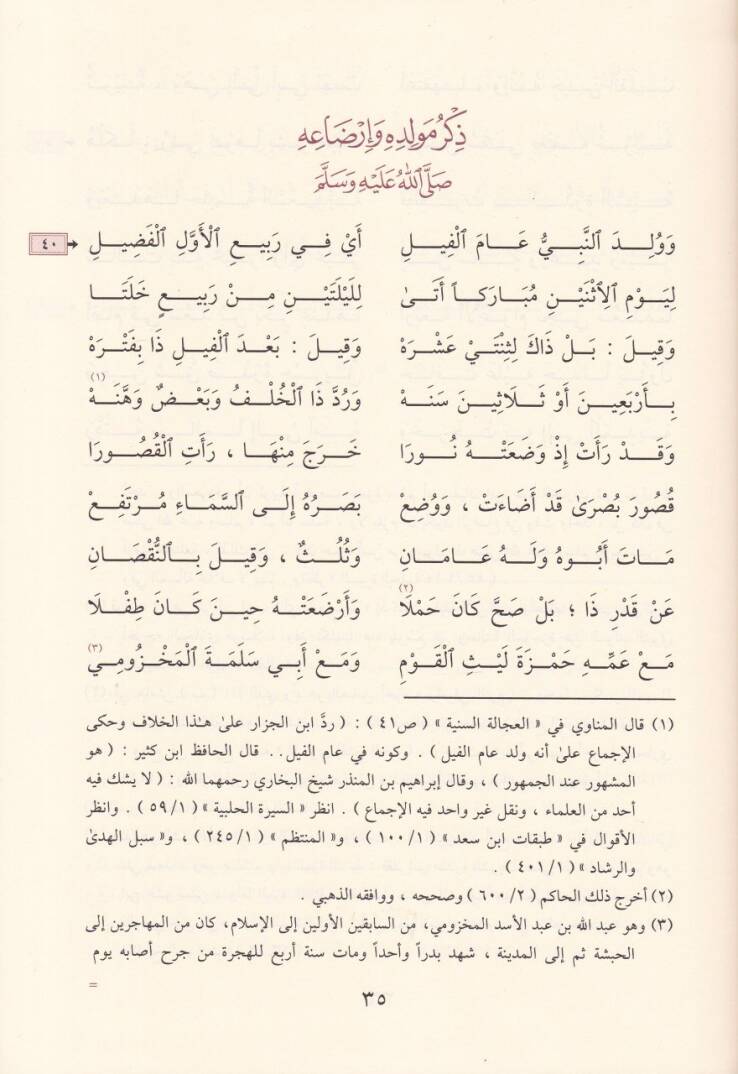 ذِكْرُ مَوْلِدِهِ وَإِرْضَاعِهِ
صَلَّى اللهُ عَلَيْهِ وَسَلَّمَ
وَوُلِـدَ ٱلنَّبِـيُّ عَـامَ ٱلْفِيلِ أَيْ فِـي رَبِيعِ ٱلْأَوَّلِ ٱلْفَضِيلِ ٤٠
لِيَوْمِ ٱلِٱثْنَيْنِ مُبَارَكاً أَتَىٰ لِلَيْلَتَيْنِ مِنْ رَبِيعٍ خَلَتَا
وَقِيلَ : بَلْ ذَاكَ لِثِنْتَيْ عَشْرَهْ وَقِيلَ : بَعْدَ ٱلْفِيلِ ذَا بِفَتْرَهْ
بِأَرْبَعِينَ أَوْ ثَلَاثِينَ سَنَهْ وَرُدَّ ذَا ٱلْخُلْفُ وَبَعْضٌ وَهَّنَهْ (١)
وَقَدْ رَأَتْ إِذْ وَضَعَتْهُ نُورَا خَرَجَ مِنْهَا ، رَأَتِ ٱلْقُصُورَا
قُصُورَ بُصْرَىٰ قَدْ أَضَاءَتْ ، وَوُضِعْ بَصَرُهُ إِلَى ٱلسَّمَاءِ مُرْتَفِعْ
مَاتَ أَبُوهُ وَلَهُ عَامَانِ وَثُلُثٌ ، وَقِيلَ بِٱلنُّقْصَانِ
عَنْ قَدْرِ ذَا ؛ بَلْ صَحَّ كَانَ حَمْلَا (٢) وَأَرْضَعَتْهُ حِينَ كَانَ طِفْلَا
مَعْ عَمِّهِ حَمْزَةَ لَيْثِ ٱلْقَوْمِ وَمَعْ أَبِي سَلَمَةَ ٱلْمَخْزُومِي (٣)
(١) قال المناوي في « العجالة السنية » ( ص٤١ ) : ( ردَّ ابن الجزار علىٰ هـٰذا الخلاف وحكى
الإجماع علىٰ أنه ولد عام الفيل ) . وكونه في عام الفيل.. قال الحافظ ابن كثير : ( هو
المشهور عند الجمهور ) ، وقال إبراهيم بن المنذر شيخ البخاري رحمهما الله : ( لا يشك فيه
أحد من العلماء ، ونقل غير واحد فيه الإجماع ) . انظر « السيرة الحلبية » ( ١/ ٥٩ ) . وانظر
الأقوال في « طبقات ابن سعد » ( ١/ ١٠٠ ) ، و« المنتظم » ( ١/ ٢٤٥ ) ، و« سبل الهدىٰ
والرشاد » ( ١/ ٤٠١ ) .
(٢) أخرج ذلك الحاكم ( ٢/ ٦٠٠ ) وصححه ، ووافقه الذهبي .
(٣) وهو عبد الله بن عبد الأسد المخزومي، من السابقين الأولين إلى الإسلام، كان من المهاجرين إلى
الحبشة ثم إلى المدينة ، شهد بدراً وأحداً ومات سنة أربع للهجرة من جرح أصابه يوم
=
٣٥